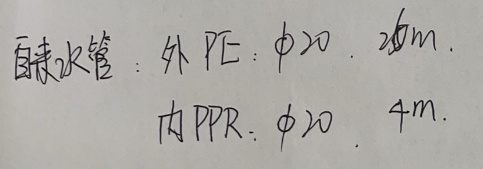 自来水管：外PE：φ20．m．
内PPR．φ20．4m．